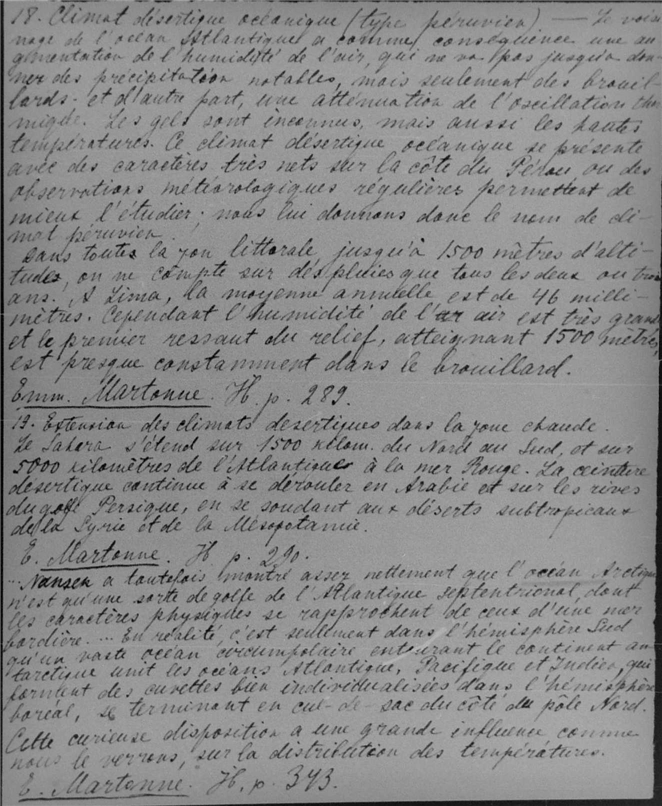 18. Climat désertique océanique (type péruvien) — Le voisi-
nage de l'océan Atlantique a comme conséquence une au-
gmentation de l'humidité de l'air, qui ne va pas jusqu'à don-
ner des précipitation notables, mais seulement des brouil-
lards; et d'autre part, une atténuation de l'oscillation ther-
mique. Les gels sont inconnus, mais aussi les hautes
températures. Ce climat désertique océanique se présente
avec des caractères très nets sur la côte du Pérou, ou des
observations météorologiques régulières permettent de
mieux l'étudier; nous lui donnons donc le nom de cli-
mat péruvien.
Dans toute la zon littorale jusqu'à 1500 mètres d'alti-
tudes, on ne compte sur des pluies que tous les deux ou trois
ans. A Lima, la moyenne annuelle est de 46 milli-
mètres. Cependant l'humidité de l' air est très grand
et le premier ressaut du relief, atteignant 1500 mètres,
est presque constamment dans le brouillard.
Emm. Martonne. H. p. 289.
19. Extension des climats desertiques dans la zone chaude.
Le Sahara s'étend sur 1500 kilom. du Nord au Sud, et sur
5000 kilomètres de l'Atlantique à la mer Rouge. La ceinture
désertique continue à se dérouler en Arabie et sur les rives
du golfe Persique, en se soudant aux déserts subtropicaux
de la Syrie et de la Mésopotamie.
E. Martonne. H p. 290.
... Nansen a toutefois montré assez nettement que l'océan Arctique
n'est qu'une sorte de golfe de l'Atlantique septentrional, dont
les caractères physiques se rapprochent de ceux d'une mer
bordière. ... En réalité, c'est seulement dans l'hémisphère Sud
qu'un vaste océan circumpolaire entourant le continent an-
tarctique unit les océans Atlantique, Pacifique et Indien, qui
forment des cuvettes bien individualisées dans l'hémisphère
boréal, se terminant en cul-de-sac du côté du pôle Nord.
Cette curieuse disposition a une grande influence comme
nous le verrons, sur la distribution des températures.
E. Martonne. H. p. 343.